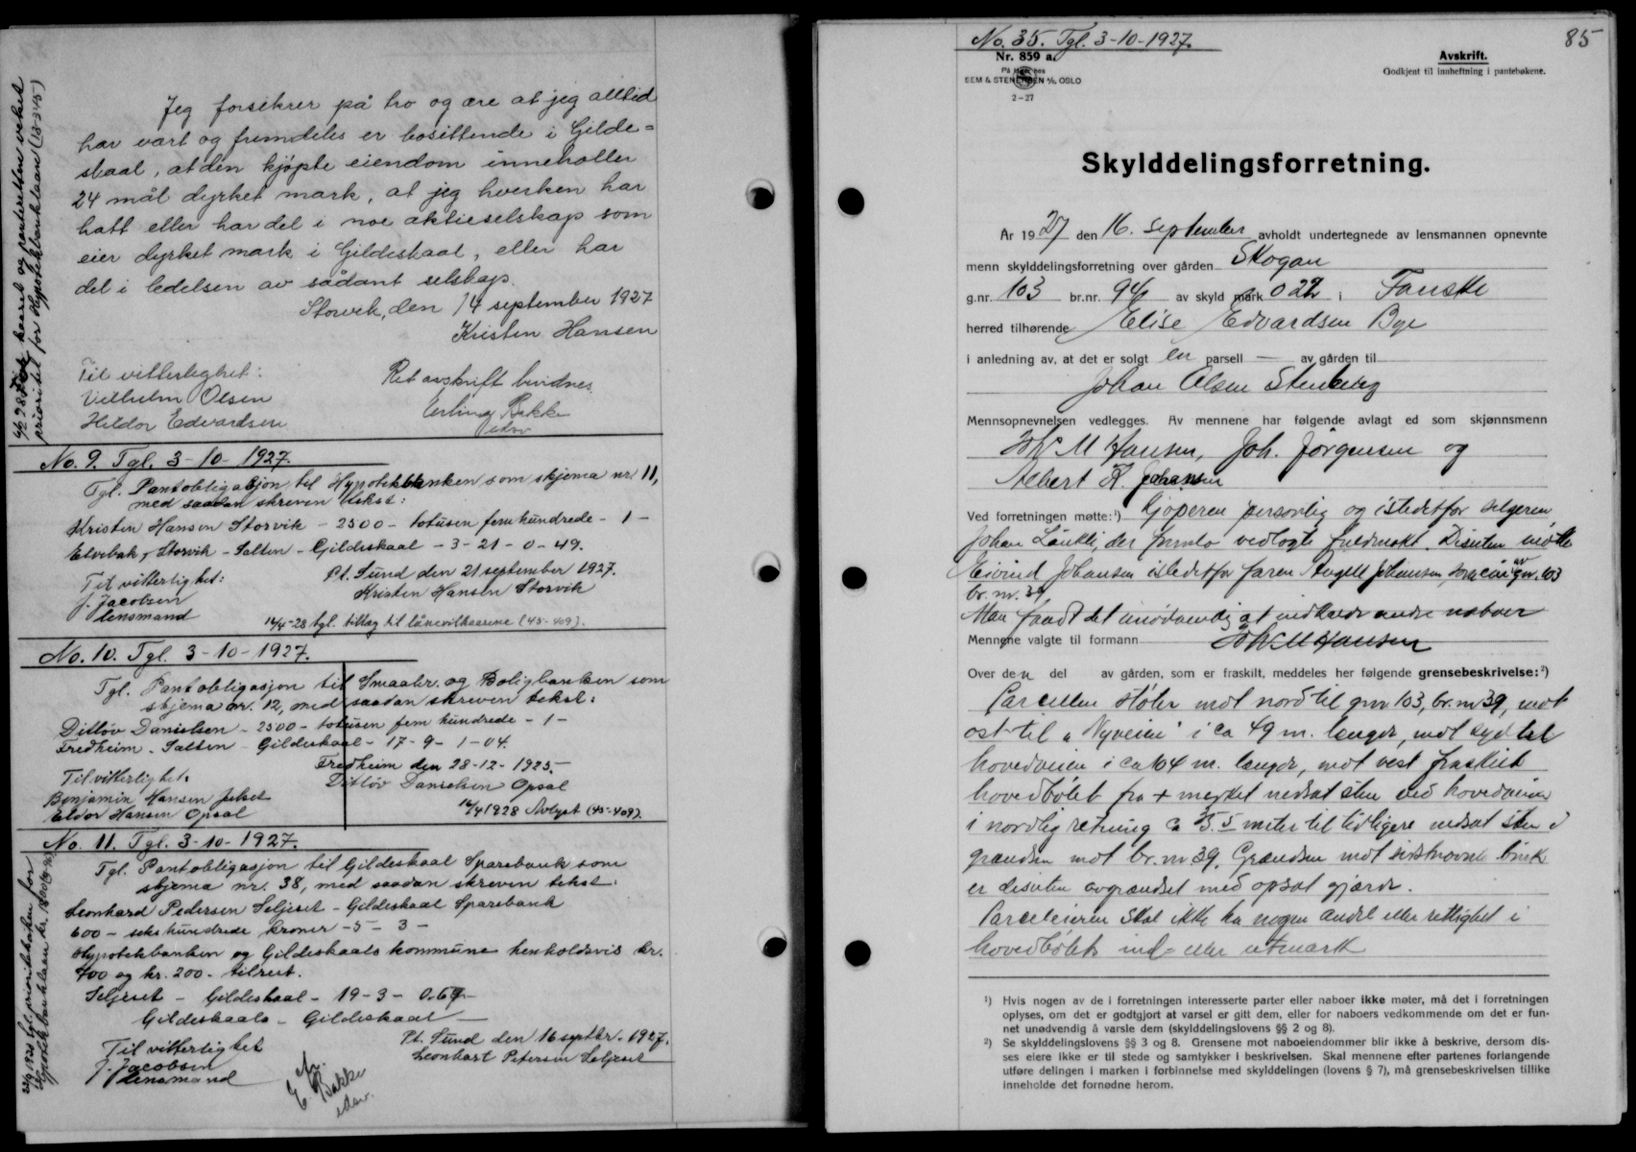 Jeg forsikrer på tro og ære at jeg alltid
har vært og fremdeles er bosittende i Gilde=
skaal, at den kjöpte eiendom inneholler
24 mål dyrket mark, at jeg hverken har
hatt eller har del i noe aktieselskap som
eier dyrket mark i Gildeskaal, eller har
del i ledelsen av sådant selskap.
Storvik, den 14 september 1927
Kristen Hansen
Til vitterlighet:
Vilhelm Olsen
Hildor Edvardsen
Ret avskrift bevidnes
Erling Bakke
edsv
prioritet for Hypotekbanklaan (18-345)
No. 9. Tgl. 3-10-1927.
Tgl. Pantobligasjon til Hypotekbanken som skjema nr. 11,
med saadan skreven tekst:
Kristen Hansen Storvik - 2500 - totusen fem hundrede - 1 -
Elvebak, Storvik - Salten - Gildeskaal - 3 - 21 - 0 - 49.
Pt. Sund den 21 september 1927.
Kristen Hansen Storvik
Til vitterlighet:
J. Jacobsen
lensmand
14/4-28 tgl. tillæg til lånevilkaarene (45-409).
No. 10. Tgl. 3-10-1927.
Tgl. Pantobligasjon til Smaabr. og Boligbanken som
skjema nr. 12, med saadan skreven tekst:
Ditløv Danielsen - 2500 - totusen fem hundrede - 1 -
Fredheim - Salten - Gildeskaal - 17 - 9 - 1 - 04.
Fredheim den 28-12-1925.
Ditløv Danielsen Opsal
Til vitterlighet:
Benjamin Hansen
Eldor Hansen Opsal
14/4 1928 Avlyst (45-409).
No. 11. Tgl. 3-10-1927.
Tgl. Pantobligasjon til Gildeskaal Sparebank som
skjema nr. 38, med saadan skreven tekst:
Leonhard Pedersen Seljeset - Gildeskaal Sparebank
600 - seks hundrede kroner - 5 - 3 -
Hypotekbanken og Gildeskaals kommune henholdsvis kr.
400 og kr. 200. - tilrest.
Seljeset - Gildeskaal - 19 - 3 - 0.69 -
Gildeskaals - Gildeskaal -
Pt. Sund den 16 septbr. 1927.
Leonhart Petersen Seljeset
Til vitterlighet
J. Jacobsen
lensmand
E. Bakke
edsv.
No. 35. Tgl. 3-10-1927.
85
Nr. 859 a.
På lager hos
SEM & STENERSEN A/S, OSLO
2-27
Avskrift.
Godkjent til innheftning i pantebøkene.
Skylddelingsforretning.
År 1927 den 16. september avholdt undertegnede av lensmannen opnevnte
menn skylddelingsforretning over gården Skogan
g.nr. 103 br.nr. 94 av skyld mark 0 22 i Fauske
herred tilhørende Elise Edvardsen Bye
i anledning av, at det er solgt en parsell — av gården til
Johan Olsen Stenberg
Mennsopnevnelsen vedlegges. Av mennene har følgende avlagt ed som skjønnsmenn
M Hansen, Joh. Jörgensen og
Albert K. Johansen
Ved forretningen møtte:¹) Kjöperen personlig og istedetfor selgeren
Johan der fremla vedlagte fuldmakt. Desuten mötte
Eivind Johansen istedetfor faren Johansen, gnr. 103
br. nr. 39
Man fandt det unödvendig at indkalde andre naboer
Mennene valgte til formann M Hansen
Over den del av gården, som er fraskilt, meddeles her følgende grensebeskrivelse:²)
Parcellen støter mot nord til gnr 103, br. nr 39, mot
ost til "Nyveien" i ca 49 m. lengde, mot syd til
hovedveien i ca 64 m. længde, mot vest fraskilt
hovedbölet fra + merket nedsat sten ved hovedveien
i nordlig retning 5 meter til tidligere nedsat sten i
grændsen mot br. nr 39. Grændsen mot sistnævnte bruk
er desuten avgrændset med opsat gjærde.
Parceleieren skal ikke ha nogen andel eller rettighet i
hovedbölets ind- eller utmark
¹) Hvis nogen av de i forretningen interesserte parter eller naboer ikke møter, må det i forretningen
oplyses, om det er godtgjort at varsel er gitt dem, eller for naboers vedkommende om det er fun-
net unødvendig å varsle dem (skylddelingslovens §§ 2 og 8).
²) Se skylddelingslovens §§ 3 og 8. Grensene mot naboeiendommer blir ikke å beskrive, dersom dis-
ses eiere ikke er til stede og samtykker i beskrivelsen. Skal mennene efter partenes forlangende
utføre delingen i marken i forbinnelse med skylddelingen (lovens § 7), må grensebeskrivelsen tillike
inneholde det fornødne herom.